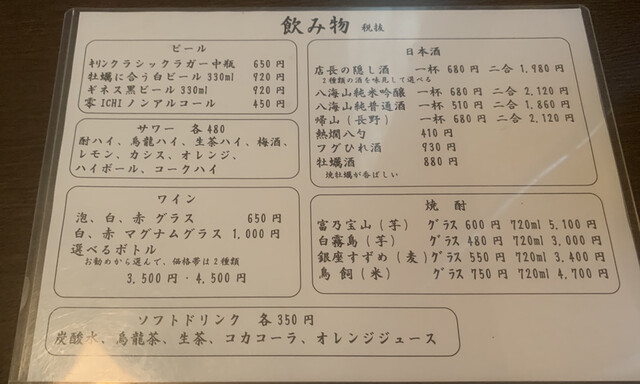 飲み物 税抜
ビール
キリンクラシックラガー中瓶 650円
牡蠣に合う白ビール330ml 920円
ギネス黒ビール330ml 920円
零ICHIノンアルコール 450円
サワー 各480
酎ハイ、烏龍ハイ、生茶ハイ、梅酒、
レモン、カシス、オレンジ、
ハイボール、コークハイ
ワイン
泡、白、赤 グラス 650円
白、赤 マグナムグラス 1,000円
選べるボトル
お勧めから選んで、価格帯は2種類
3,500円・4,500円
日本酒
店長の隠し酒 一杯 680円 二合 1,980円
2種類の酒を味見して選べる
八海山純米吟醸 一杯 680円 二合 2,120円
八海山純普通酒 一杯 510円 二合 1,860円
帰山(長野) 一杯 680円 二合 2,120円
熱燗八勺 410円
フグひれ酒 930円
牡蠣酒 880円
焼牡蠣が香ばしい
焼酎
富乃宝山(芋) グラス 600円 720ml 5,100円
白霧島(芋) グラス 480円 720ml 3,000円
銀座すずめ(麦) グラス 550円 720ml 3,400円
鳥飼(米) グラス 750円 720ml 4,700円
ソフトドリンク 各350円
炭酸水、烏龍茶、生茶、コカコーラ、オレンジジュース